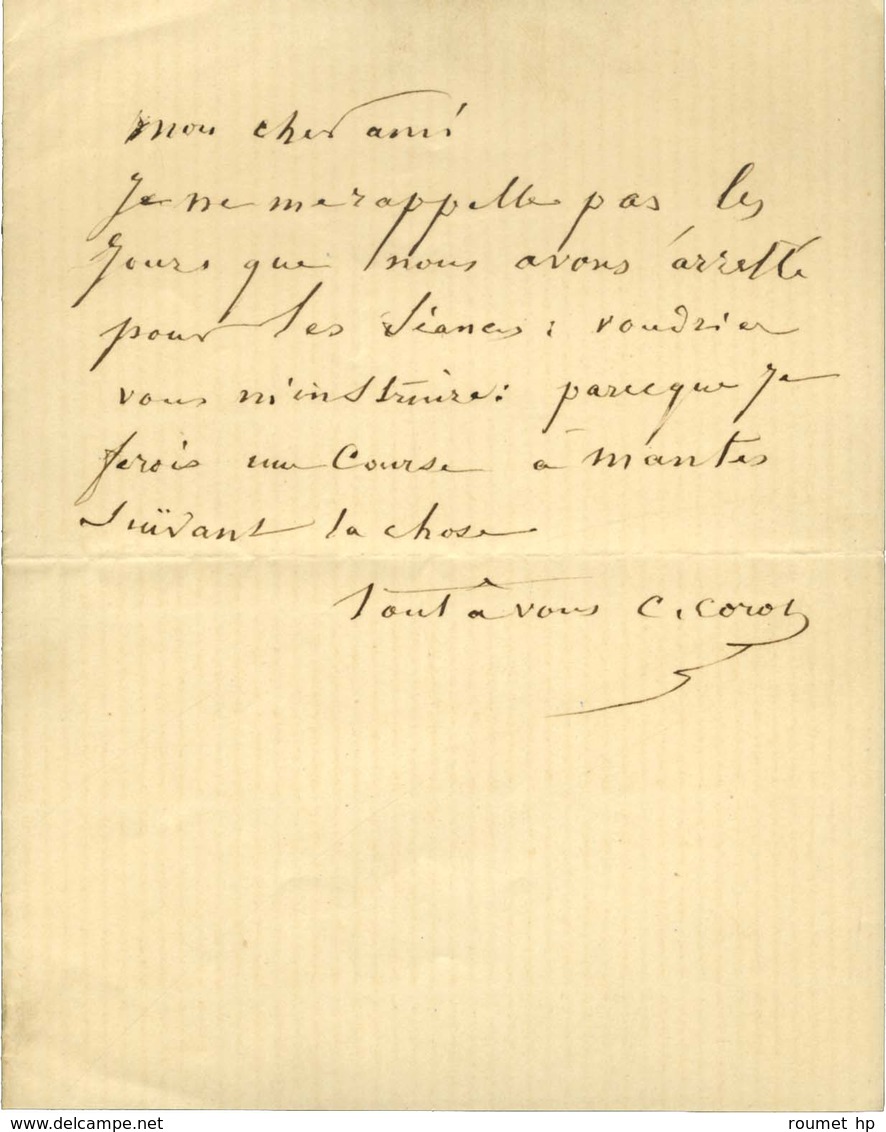 Mon cher ami
Je ne me rappelle pas les
Jours que nous avons arretté
pour les séances : voudriez
vous m'instruire : parceque Je
ferois une Course à Mantes
suivant la chose
tout à vous C. Corot
www.delcampe.net
roumet hp